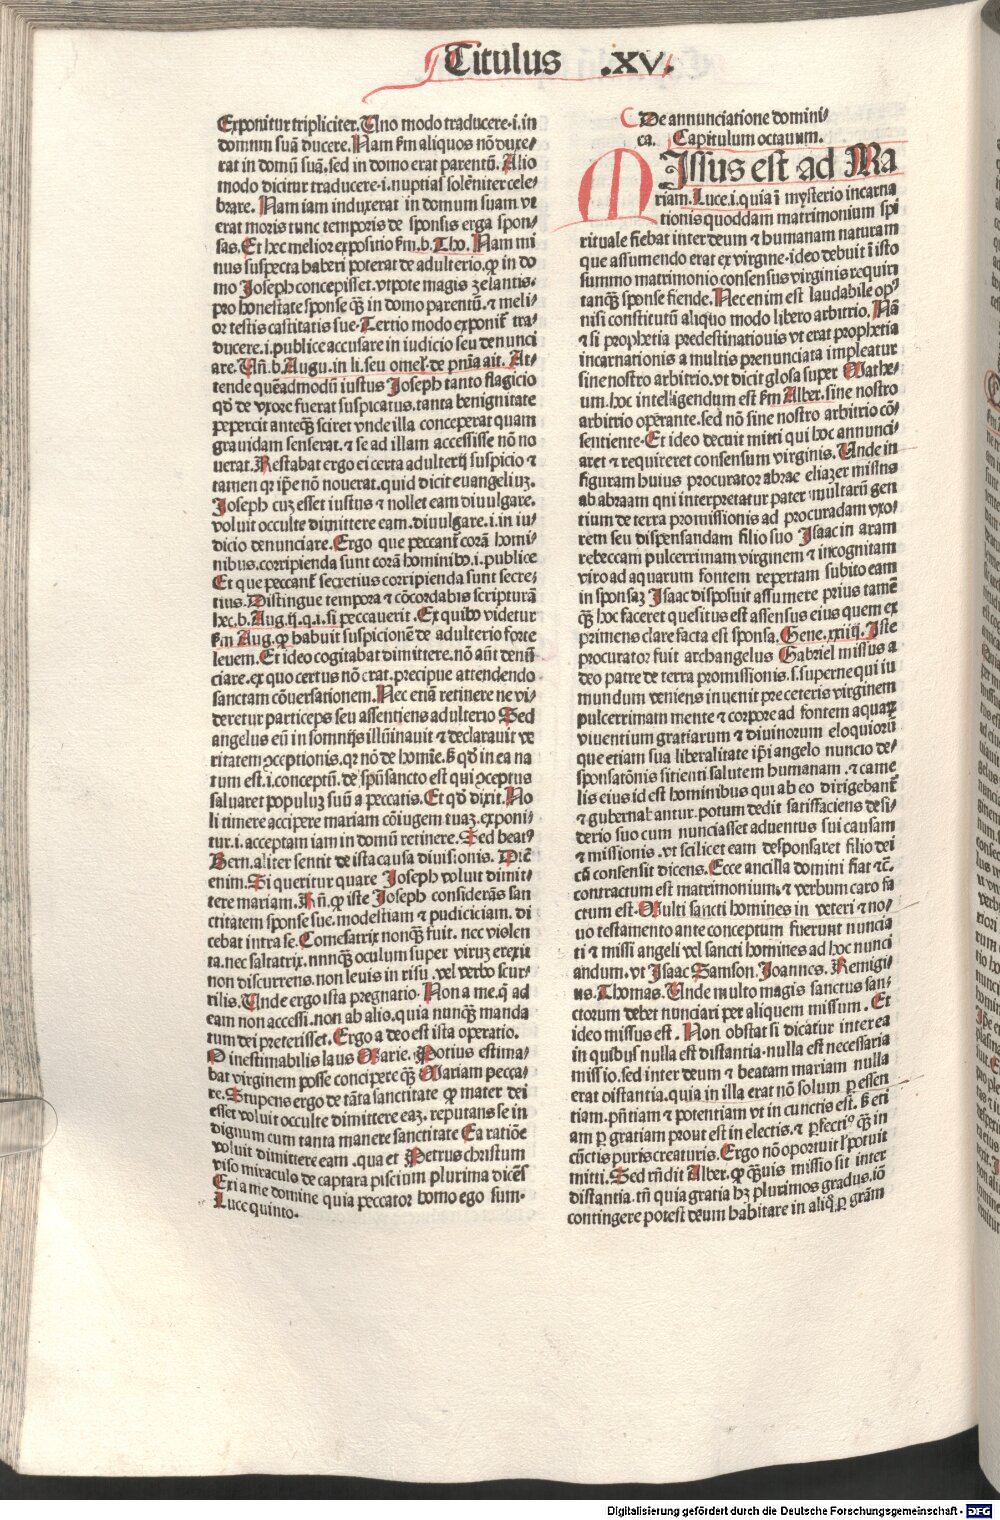 Titulus .XV.
Exponitur tripliciter. Uno modo traducere .i. in
domum suā ducere. Nam s̄m aliquos nō duxe/
rat in domū suā. sed in domo erat parentū. Alio
modo dicitur traducere .i. nuptias solēniter cele/
brare. Nam iam induxerat in domum suam vt
erat moris tunc temporis de sponsis erga spon/
sas. Et hec melior expositio s̄m .b. Tho. Nam mi
nus suspecta haberi poterat de adulterio. ꝙ in do
mo Joseph concepisset. vtpote magis zelantis.
pro honestate sponse qȝ in domo parentū. ⁊ meli/
or testis castitatis sue. Tertio modo exponit̄ tra/
ducere .i. publice accusare in iudicio seu denunci
are. Uñ .b. Augu. in li. seu omel. de pnīa ait. At/
tende quēadmodū iustus Joseph tanto flagicio
qd̄ de vxore fuerat suspicatus. tanta benignitate
pepercit anteqȝ sciret vnde illa conceperat quam
grauidam senserat. ⁊ se ad illam accessisse nō no
uerat. Restabat ergo ei certa adulterij suspicio ⁊
tamen qr ip̄e nō nouerat. quid dicit euangeliuȝ.
Joseph cuȝ esset iustus ⁊ nollet eam diuulgare.
voluit occulte dimittere eam. diuulgare .i. in iu/
dicio denunciare. Ergo que peccant̄ corā homi/
nibus. corripienda sunt corā hominibȝ .i. publice
Et que peccant̄ secretius corripienda sunt secre/
tius. Distingue tempora ⁊ cōcordabis scripturā
hec .b. Aug. ij. q. i. si peccauerit. Ex quibȝ videtur
s̄m Aug. ꝙ habuit suspicionē de adulterio forte
leuem. Et ideo cogitabat dimittere. nō aūt denū
ciare. ex quo certus nō erat. precipue attendendo
sanctam cōuersationem. Nec etiā retinere ne vi/
deretur particeps seu assentiens adulterio Sed
angelus eū in somnijs illūinauit ⁊ declarauit ve
ritatem ↄceptionis. qr nō de homīe. s̄ qd̄ in ea na
tum est .i. conceptū. de spū sancto est qui ↄceptus
saluaret populuȝ suū a peccatis. Et qd̄ dixit. No
li timere accipere mariam cōiugem tuaȝ. exponi/
tur .i. acceptam iam in domū retinere. Sed beatꝰ
Bern. aliter sentit de ista causa diuisionis. Dicē
enim. Si queritur quare Joseph voluit dimit/
tere mariam. Rñ. ꝙ iste Joseph considerās san
ctitatem sponse sue. modestiam ⁊ pudiciciam. di
cebat intra se. Comesatrix nonqȝ fuit. nec violen
ta. nec saltatrix. nunqȝ oculum super viruȝ erexit
non discurrens. non leuis in risu. vel verbo scur/
rilis. Unde ergo ista pregnatio. Non a me. q ad
eam non accessi. non ab alio. quia nunqȝ manda
tum dei preterisset. Ergo a deo est ista operatio.
O inestimabilis laus Marie. Potius estima/
bat virginem posse concipere qȝ Mariam pecca/
re. Stupens ergo de tāta sanctitate ꝙ mater dei
esset voluit occulte dimittere eaȝ. reputans se in
dignum cum tanta manere sanctitate Ea ratiōe
voluit dimittere eam. qua et Petrus christum
viso miraculo de captara piscium plurima dicēs
Exi a me domine quia peccator homo ego sum.
Luce quinto.
De annunciatione domini/
ca. Capitulum octauum.
MIssus est ad Ma
riam. Luce .i. quia ī mysterio incarna
tionis quoddam matrimonium spi
rituale fiebat inter deum ⁊ humanam naturam
que assumendo erat ex virgine. ideo debuit ī isto
summo matrimonio consensus virginis requiri
tanqȝ sponse fiende. Nec enim est laudabile opꝰ
nisi constitutū aliquo modo libero arbitrio. Nā
⁊ si prophetia predestinatiouis vt erat prophetia
incarnationis a multis prenunciata impleatur
sine nostro arbitrio. vt dicit glosa super Mathe/
um. hoc intelligendum est s̄m Alber. sine nostro
arbitrio operante. sed nō sine nostro arbitrio cō/
sentiente. Et ideo decuit mitti qui hoc annunci/
aret ⁊ requireret consensum virginis. Unde in
figuram huius procurator abrae eliazer missus
ab abraam qui interpretatur pater multarū gen
tium de terra promissionis ad procuradam vxo/
rem seu dispensandam filio suo Isaac in aram
rebeccam pulcerrimam virginem ⁊ incognitam
viro ad aquarum fontem repertam subito eam
in sponsaȝ Isaac disposuit assumere prius tamē
qȝ hoc faceret quesitus est assensus eius quem ex
primens clare facta est sponsa. Gene. xxiiij. Iste
procurator fuit archangelus Gabriel missus a
deo patre de terra promissionis .s. superne qui iu
mundum veniens inuenit pre ceteris virginem
pulcerrimam mente ⁊ corpore ad fontem aquaꝝ
viuentium gratiarum ⁊ diuinorum eloquiorū
que etiam sua liberalitate ip̄i angelo nuncio de/
sponsatōnis sitienti salutem humanam. ⁊ came
lis eius id est hominibus qui ab eo dirigebant̄
⁊ gubernabantur. potum dedit satisfaciens desi/
derio suo cum nunciasset aduentus sui causam
⁊ missionis. vt scilicet eam desponsaret filio dei
cū consensit dicens. Ecce ancilla domini fiat ⁊c̄.
contractum est matrimonium. ⁊ verbum caro fa
ctum est. Multi sancti homines in veteri ⁊ no/
uo testamento ante conceptum fuerunt nuncia
ti ⁊ missi angeli vel sancti homines ad hoc nunci
andum. vt Isaac Samson. Joannes. Remigi/
us. Thomas. Unde multo magis sanctus san/
ctorum debet nunciari per aliquem missum. Et
ideo missus est. Non obstat si dicatur inter ea
in quibus nulla est distantia. nulla est necessaria
missio. sed inter deum ⁊ beatam mariam nulla
erat distantia. quia in illa erat nō solum ꝑ essen
tiam. pn̄tiam ⁊ potentiam vt in cunctis est. s̄ eti
am ꝑ gratiam prout est in electis. ⁊ ꝑfectiꝰ qȝ in
cūctis puris creaturis. Ergo nō oportuit l̄ potuit
mitti. Sed rn̄dit Alber. ꝙ qȝuis missio sit inter
distantia. tn̄ quia gratia hȝ plurimos gradus. iō
contingere potest deum habitare in aliq̄ ꝑ grām
Digitalisierung gefördert durch die Deutsche Forschungsgemeinschaft - DFG